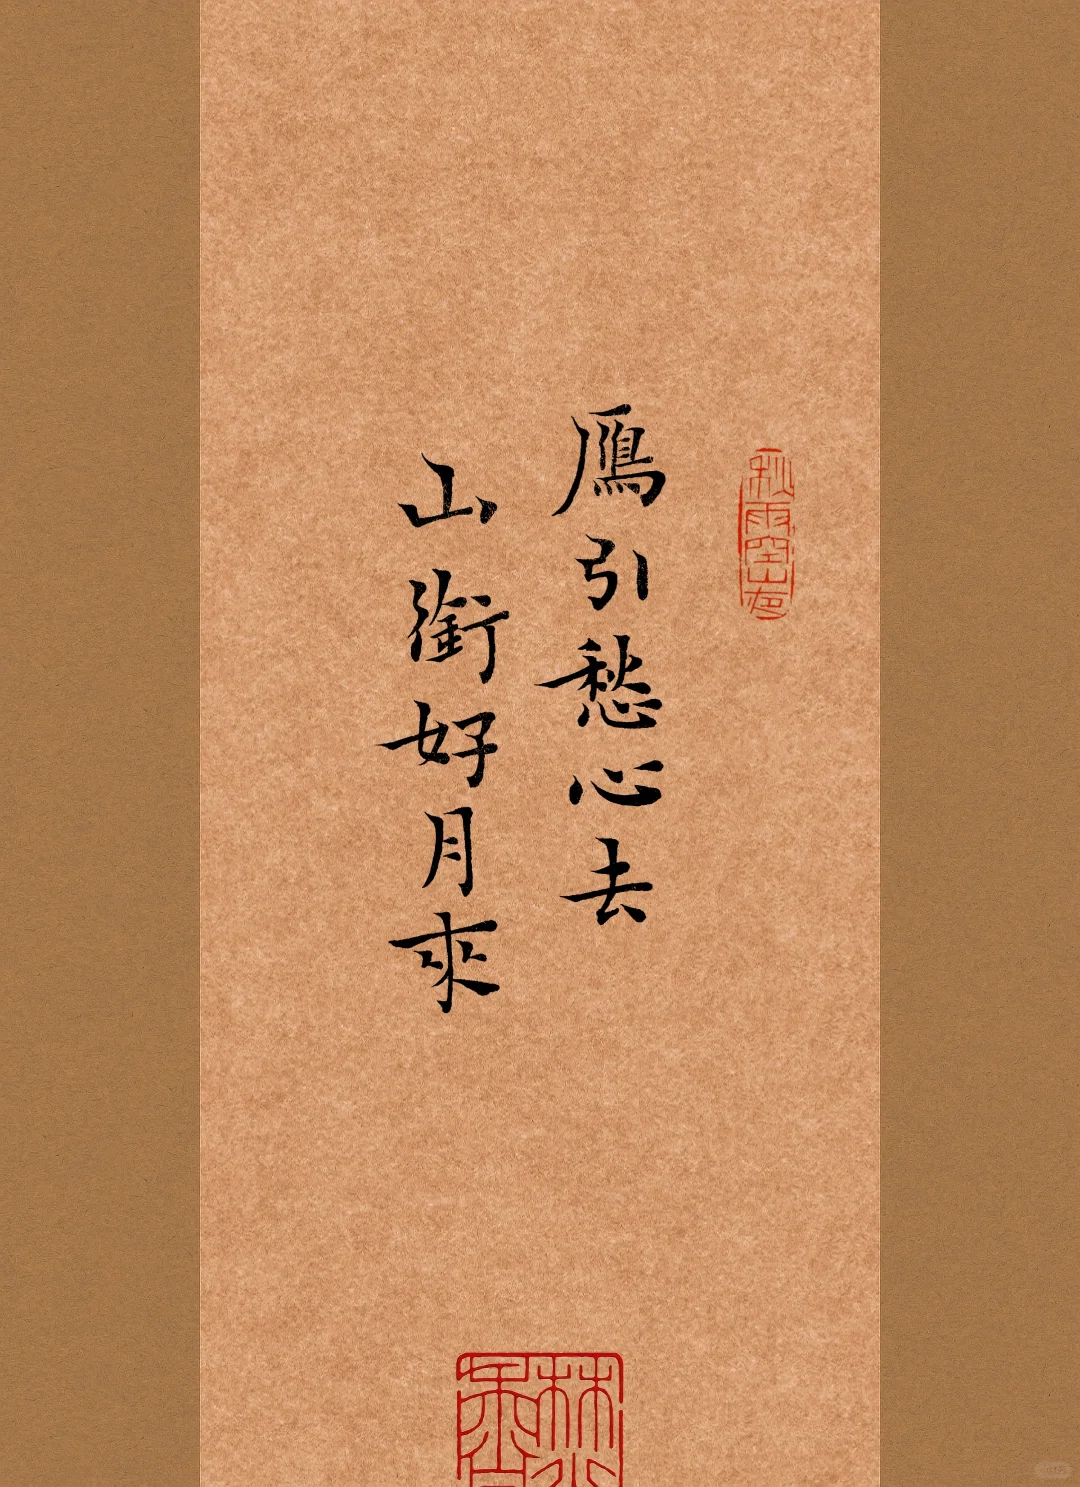 鴈引愁心去
山銜好月來
秋雨空山夜